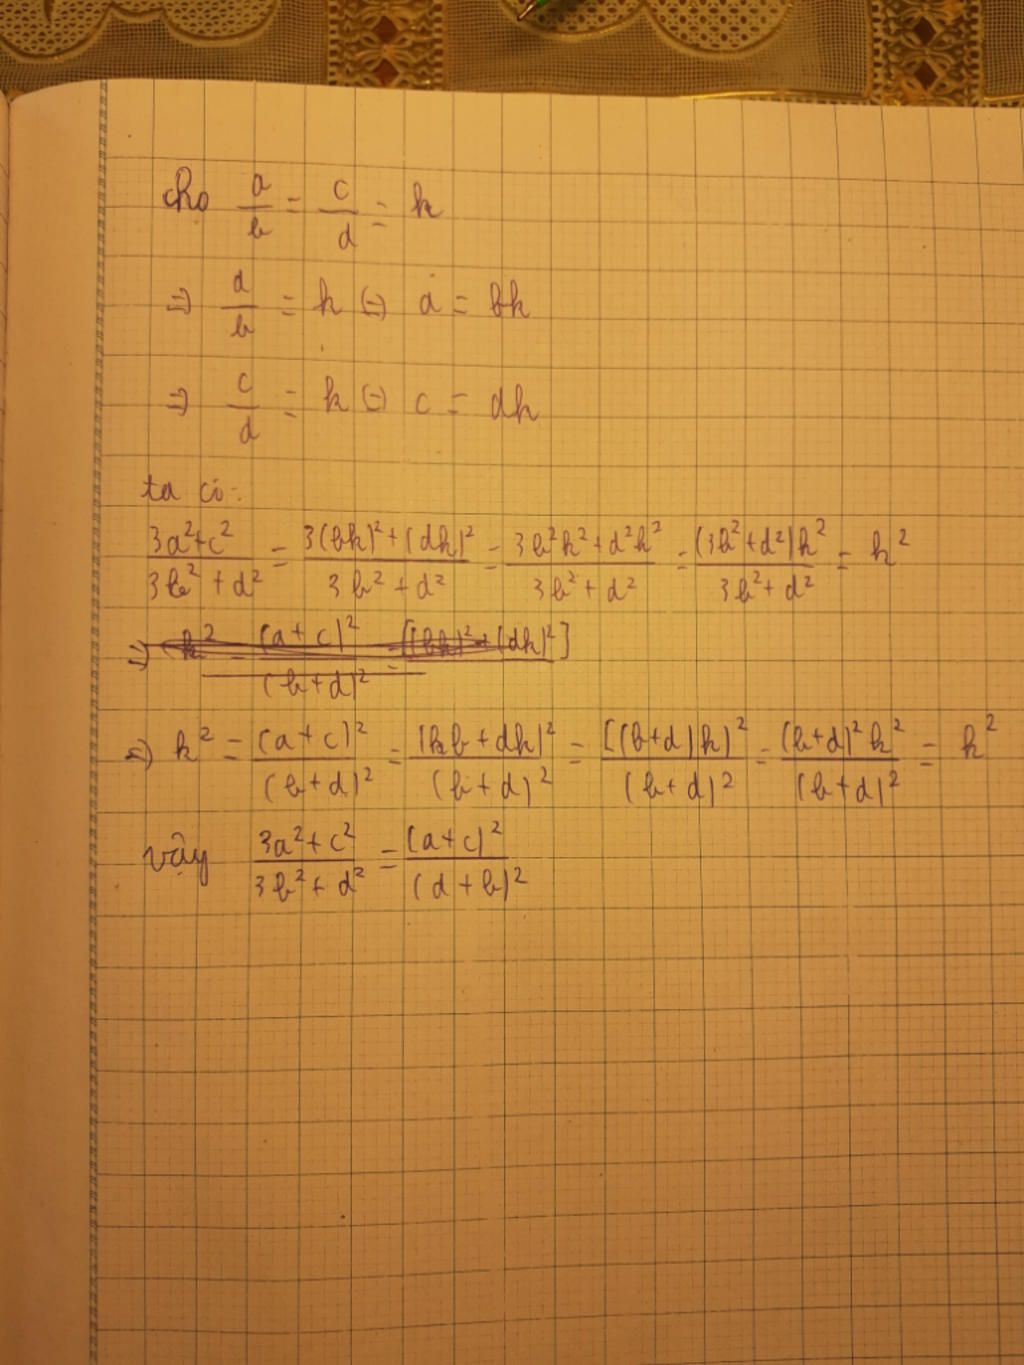 cho a/b = c/d = k
=> a/b = k (=) a = bk
=> c/d = k (=) c = dk
ta có:
(3a²+c²)/(3b²+d²) = (3(bk)²+(dk)²)/(3b²+d²) = (3b²k²+d²k²)/(3b²+d²) = ((3b²+d²)k²)/(3b²+d²) = k²
=> k² = (a+c)²/(b+d)² = [(bk)²+(dk)²]
=> k² = (a+c)²/(b+d)² = (kb+dk)²/(b+d)² = [(b+d)k)²/(b+d)² = (b+d)²k²/(b+d)² = k²
vậy (3a²+c²)/(3b²+d²) = (a+c)²/(d+b)²